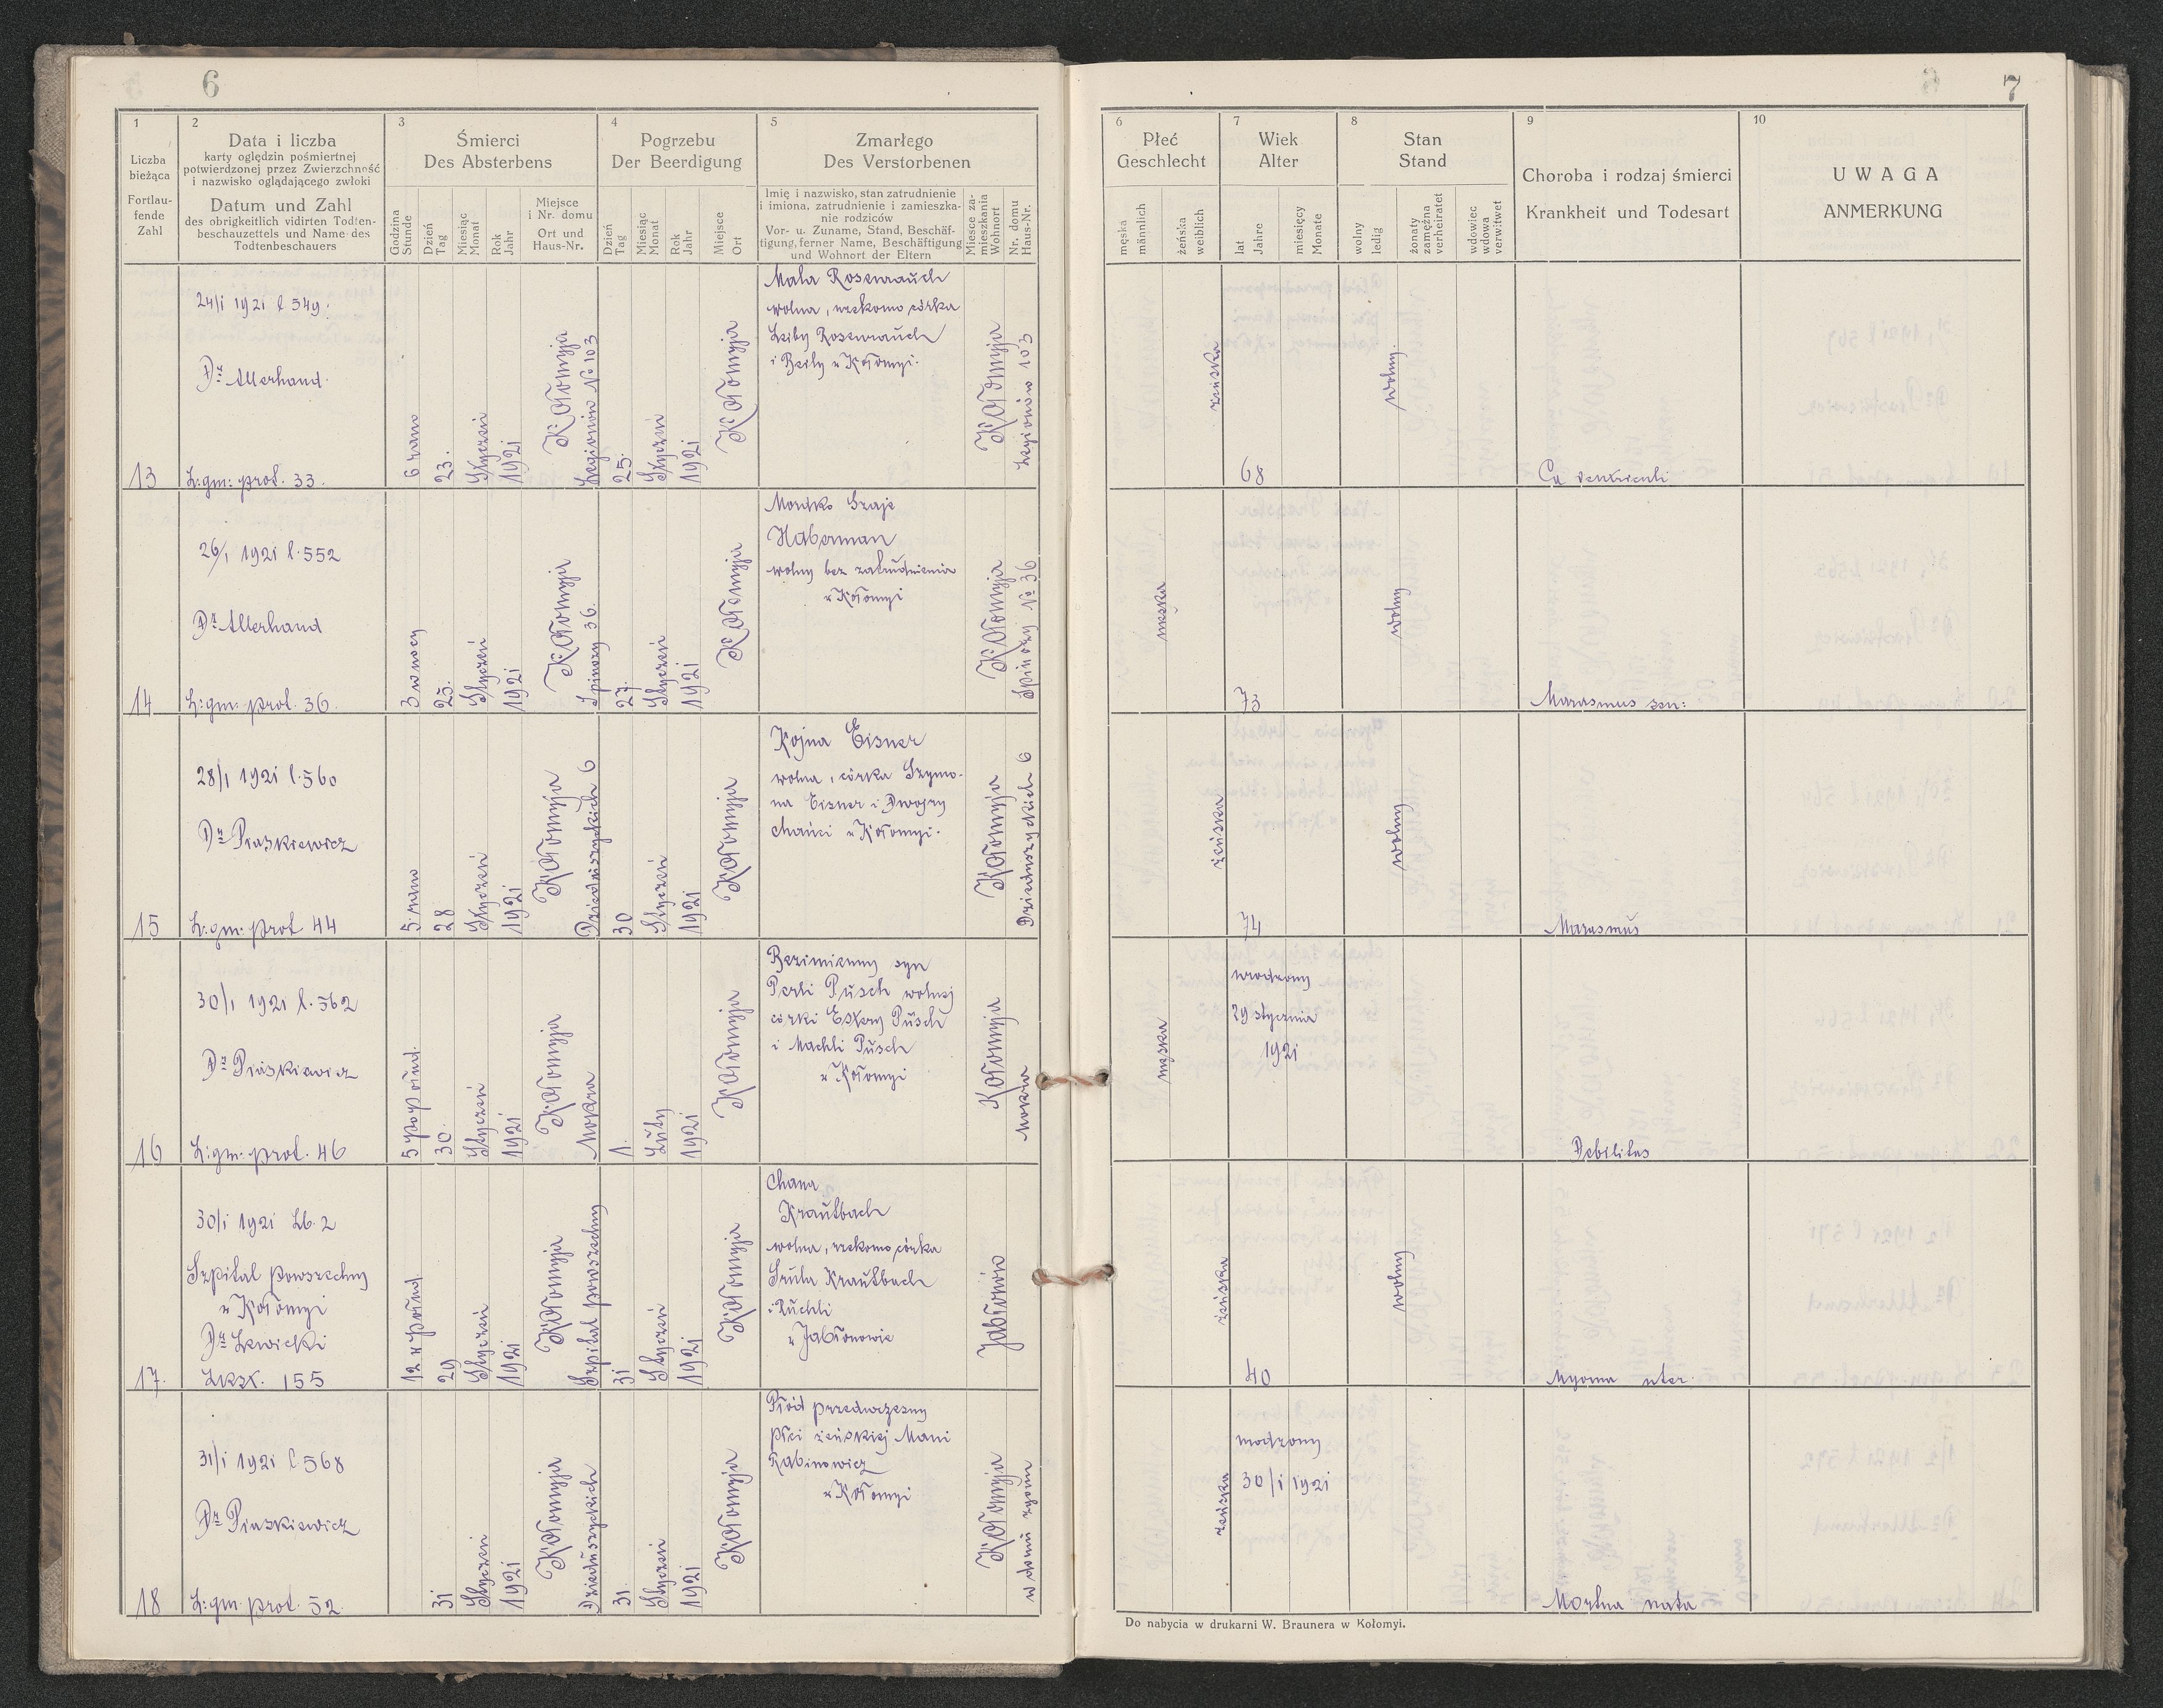 6
1
Liczba
bieżąca
Fortlau-
fende
Zahl
2
Data i liczba
karty oględzin pośmiertnej
potwierdzonej przez Zwierzchność
i nazwisko oglądającego zwłoki
Datum und Zahl
des obrigkeitlich vidirten Todten-
beschauzettels und Name des
Todtenbeschauers
3
Śmierci
Des Absterbens
Godzina
Stunde
Dzień
Tag
Miesiąc
Monat
Rok
Jahr
Miejsce
i Nr. domu
Ort und
Haus-Nr.
4
Pogrzebu
Der Beerdigung
Dzień
Tag
Miesiąc
Monat
Rok
Jahr
Miejsce
Ort
5
Zmarłego
Des Verstorbenen
Imię i nazwisko, stan zatrudnienie
i imiona, zatrudnienie i zamieszka-
nie rodziców
Vor- u. Zuname, Stand, Beschäf-
tigung, ferner Name, Beschäftigung
und Wohnort der Eltern
Miesce za-
mieszkania
Wohnort
Nr. domu
Haus-Nr.
13
24/i 1921 l 549.
Dr Allerhand
L: gm: prot. 33.
6 rano
23.
Styczeń
1921
Kołomyja
Legionów No 103
25.
Styczeń
1921
Kołomyja
Mala Rosenrauch
wolna, rzekomo córka
Leiby Rosenrauch
i Beily w Kołomyi.
Kołomyja
Legionów 103
14
26/1 1921 l. 552
Dr Allerhand
L: gm: prot. 36.
3 w nocy
25.
Styczeń
1921
Kołomyja
Spinozy 36.
27.
Styczeń
1921
Kołomyja
Mordko Szaje
Haberman
wolny bez zatrudnienia
w Kołomyi
Kołomyja
Spinozy No 36
15
28/1 1921 l. 560
Dr Piaskiewicz
L: gm: prot 44
5 rano
28
Styczeń
1921
Kołomyja
Dzieduszyckich 6
30
Styczeń
1921
Kołomyja
Kojna Eisner
wolna, córka Szymo-
na Eisner i Dwojry
Chańci w Kołomyi.
Kołomyja
Dzieduszyckich 6
16
30/1 1921 l. 562
Dr Piaskiewicz
L: gm: prot. 46
5 popołud.
30.
Styczeń
1921
Kołomyja
Mokra
1.
Luty
1921
Kołomyja
Bezimienny syn
Perli Pusch wolnej
córki Estery Pusch
i Machli Pusch
w Kołomyi
Kołomyja
Mokra
17.
30/i 1921 Lb. 2
Szpital powszechny
w Kołomyi
Dr Lewicki
155
12 w połud.
29
Styczeń
1921
Kołomyja
Szpital powszechny
31
Styczeń
1921
Kołomyja
Chana
Krautbach
wolna, rzekomo córka
Srula Krautbach
i Ruchli
w Jabłonowie
Jabłonów
18
31/i 1921 l 568
Dr Piaskiewicz
L: gm: prot. 52
31
Styczeń
1921
Kołomyja
Dzieduszyckich
31.
Styczeń
1921
Kołomyja
Płód przedwczesny
płci żeńskiej Mani
Rabinowicz
w Kołomyi
Kołomyja
w domu
7
6
Płeć
Geschlecht
męska
männlich
żeńska
weiblich
7
Wiek
Alter
lat
Jahre
miesięcy
Monate
8
Stan
Stand
wolny
ledig
żonaty
zamężna
verheiratet
wdowiec
wdowa
verwitwet
9
Choroba i rodzaj śmierci
Krankheit und Todesart
10
UWAGA
ANMERKUNG
żeńska
68
wolny
Ca ventriculi
męska
73
wolny
Marasmus sen:
żeńska
74
wolny
Marasmus
męska
urodzony
29 stycznia
1921
Debilitas
żeńska
40
wolny
Myoma uter.
żeńska
urodzony
30/i 1921
Mortua nata
Do nabycia w drukarni W. Braunera w Kołomyi.